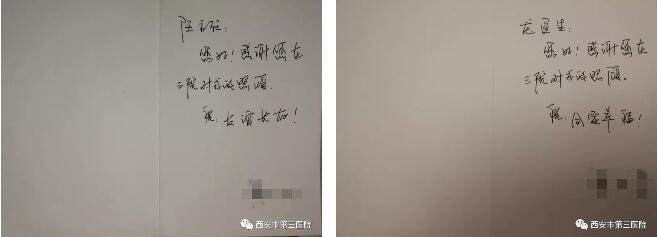 您好！感谢您在
三院对我的照顾。
祝：友谊长存！
西安市第三医院
龙医生：
您好！感谢您在
三院对我的照顾。
祝：阖家幸福！
西安市第三医院